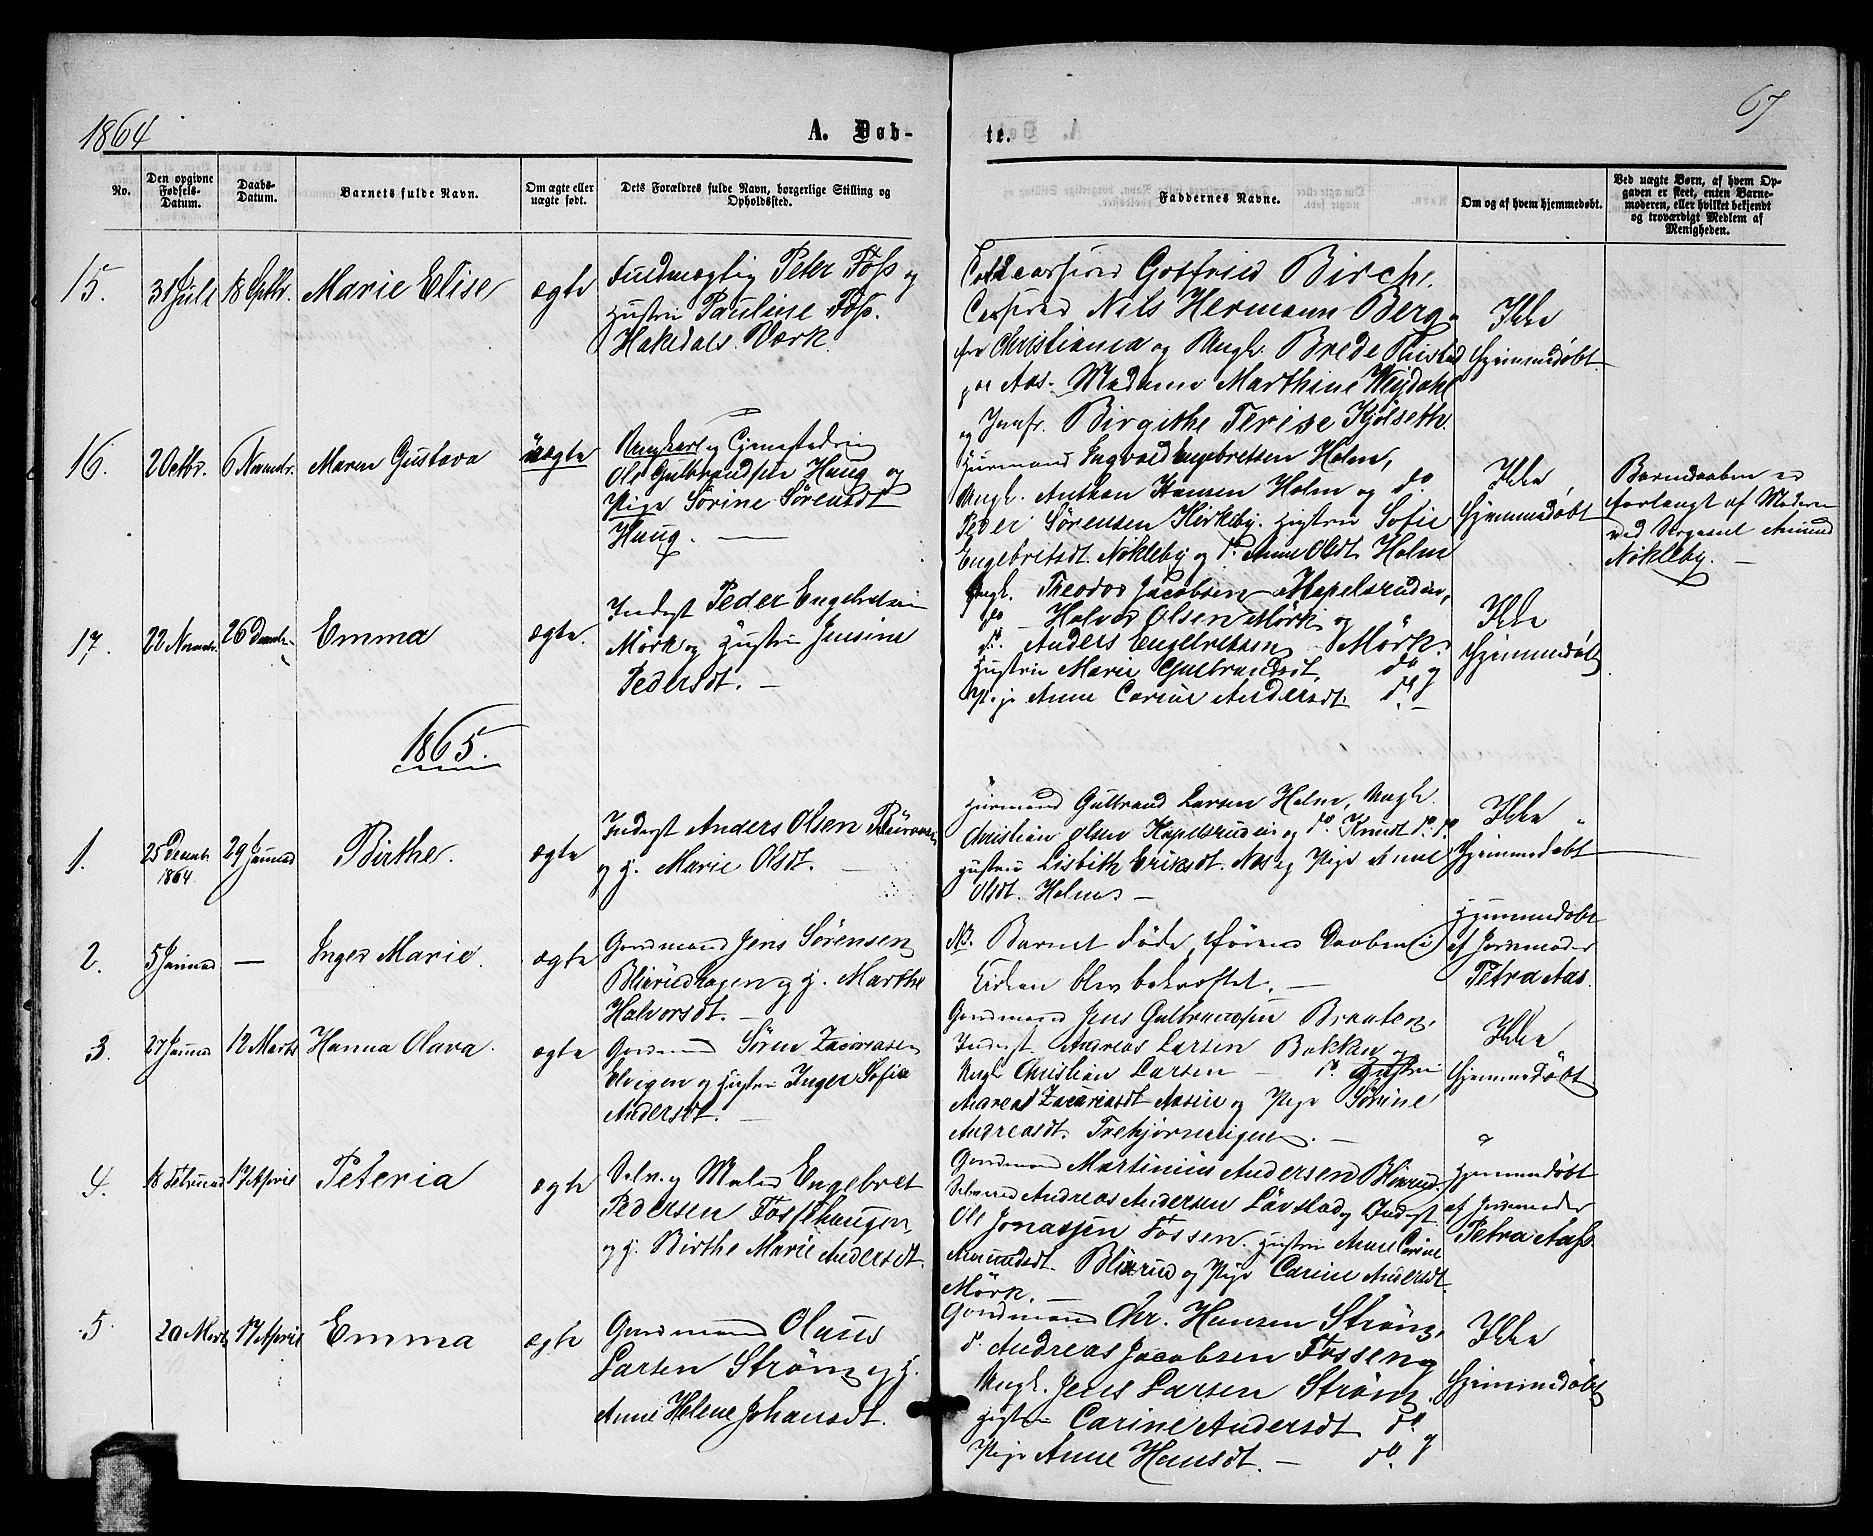 1864
A. Døb-
te.
67
No.
Den opgivne Fødsels-Datum.
Daabs-Datum.
Barnets fulde Navn.
Om ægte eller uægte født.
Dets Forældres fulde Navn, borgerlige Stilling og Opholdssted.
Faddernes Navne.
Om og af hvem hjemmedøbt.
Ved uægte Børn, af hvem Opgaven er skeet, enten Barnemoderen, eller hvilket bekjendt og troværdigt Medlem af Menigheden.
15. 31 Juli 18 Septbr. Marie Elise ægte
Fuldmægtig Peter Foss og
Hustru Pauline Foss.
Hakedals Værk.
Gotfried Birch,
Nils Hermann Berg
fra Christiania og Ungk. Brede
Aas. Madame Marthine
og Jomfr. Birgithe Terese Kjølseth.
Ikke
hjemmedøbt
16. 2 Octbr. 6 Novembr. Maren Gustava uægte
Ungkarl og
Ole Gulbrandsen Haug og
Pige Sørine Sørensdt
Haug. —
Huusmand Ingvald Engebretsen Holm,
Ungk. Anthon Hansen Holm og do
Peder Sørensen Kirkeby. Hustru Sofie
Engebretsdt. Nökleby og do Anne Olsdt Holm
Ikke
hjemmedøbt
Barnedaaben er
forlangt af Moderen
ved Amund
Nökleby. —
17. 22 Novembr. 26 Decembr. Emma ægte.
Inderst Peder Engebretsen
Mörk og Hustru Jensine
Pedersdt. —
Ungk. Theodor Jacobsen Hapelsrudeie,
do Halvor Olsen Mörk og
do. Anders Engebretsen Mörk.
Hustru Marie Gulbrandsdt. do og
Pige Anne Carine Andersdt. do. —
Ikke
hjemmedøbt
1865.
1. 25 Decembr. 1864 29 Januar Birthe. ægte
Inderst Anders Olsen
og h. Marie Olsdt. —
Huusmand Gulbrand Larsen Holm, Ungk.
Christian Olsen Hapelsrudeie og do. Knudt do. do.
Hustru Lisbeth Eriksdt. Aas og Pige Anne
Olsdt. Holm —
Ikke
hjemmedøbt
2. 5 Januar — Inger Marie. ægte
Gaardmand Jens Sørensen
Blierudhagen og h. Marthe
Halvorsdt. —
NB. Barnet døde, førend Daaben i
Kirken blev bekræftet. —
Hjemmedøbt
af Jordmoder
Petra Aas.
3. 27 Januar 12 Marts Hanna Olava. ægte
Gaardmand Sören Zacariasen
Elvigen og Hustru Inger Sofie
Andersdt. —
Gaardmand Jens Gulbrandsen Braaten,
Inderst Andreas Larsen Bakken og
Ungk. Christian Larsen — do Hustru
Andrea Zacariasdt Aasen og Pige Sörine
Andreasdt. —
Ikke
hjemmedøbt
4. 18 Februar 17 April Peteria ægte
Selv. og Maler Engebret
Pedersen Fossehaugen
og h. Birthe Marie Andersdt.
Gaardmand Martinius Andersen Blierud.
Selveier Andreas Andersen Lövstad og Inderst
Ole Jonassen Fossen. Hustru Anne Carine
Amundsdt. Blierud og Pige Carine Andersdt
Mörk.
Hjemmedøbt
af Jordemoder
Petra Aas.
5. 20 Marts 17 April Emma ægte
Gaardmand Olaus
Larsen Ström og h.
Anne Helene Johansdt.
Gaardmand Chr. Hansen Ström,
do Andreas Jacobsen Fossen og
Ungk. Jens Larsen Ström
Hustru Carine Andersdt do og
Pige Anne Hansdt. — do.
Ikke
hjemmedøbt